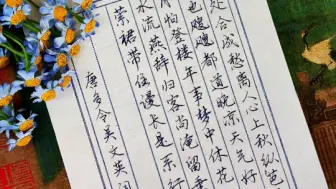 处合成愁离人心上秋纵芭
也飕飕都道晚凉天气好
月怕登楼年事梦中休花
水流燕辞归客尚淹留垂
萦裙带住漫长是系行
唐多令吴文英